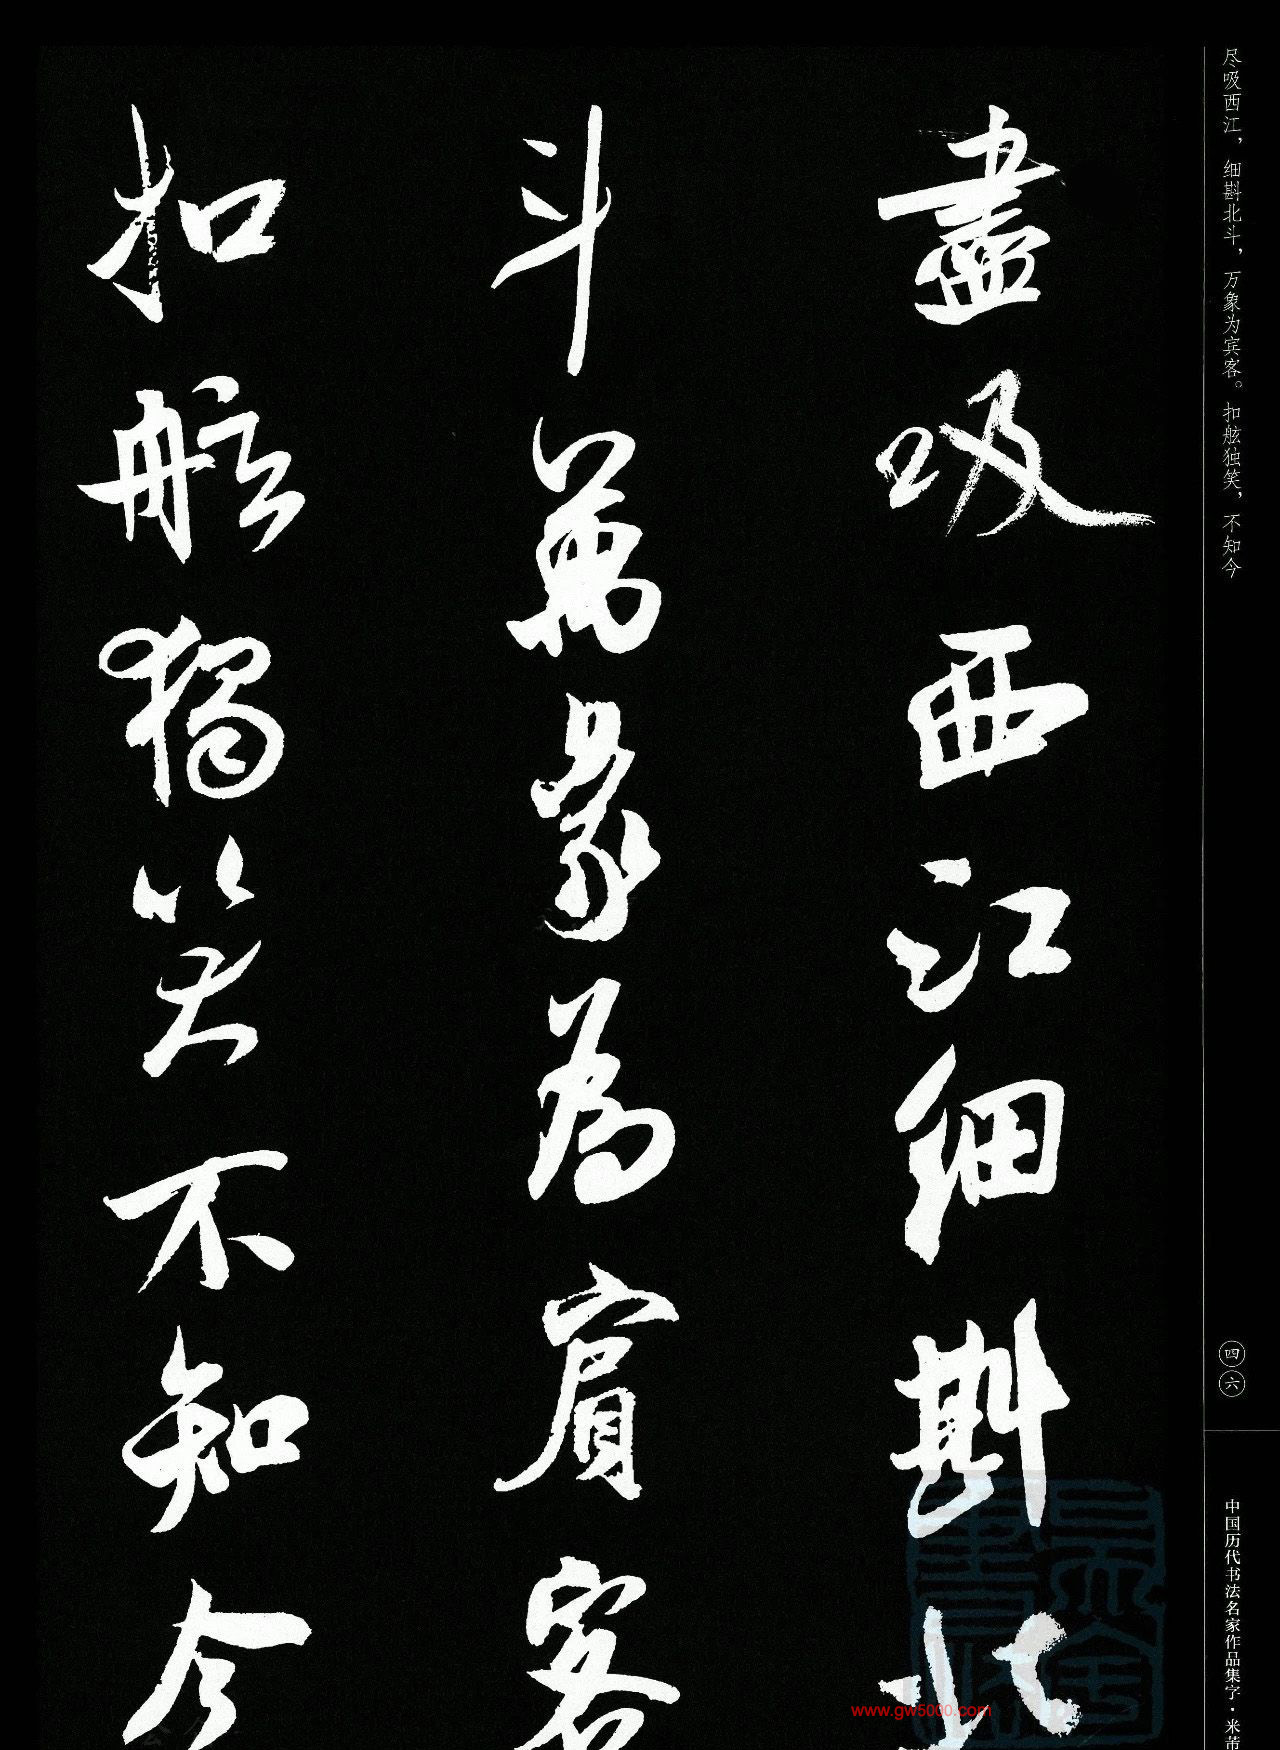 盡吸西江細斟北
斗萬象為賓客
扣舷獨笑不知今
尽吸西江，细斟北斗，万象为宾客。扣舷独笑，不知今
四六
中国历代书法名家作品集字·米芾
www.gw5000.com